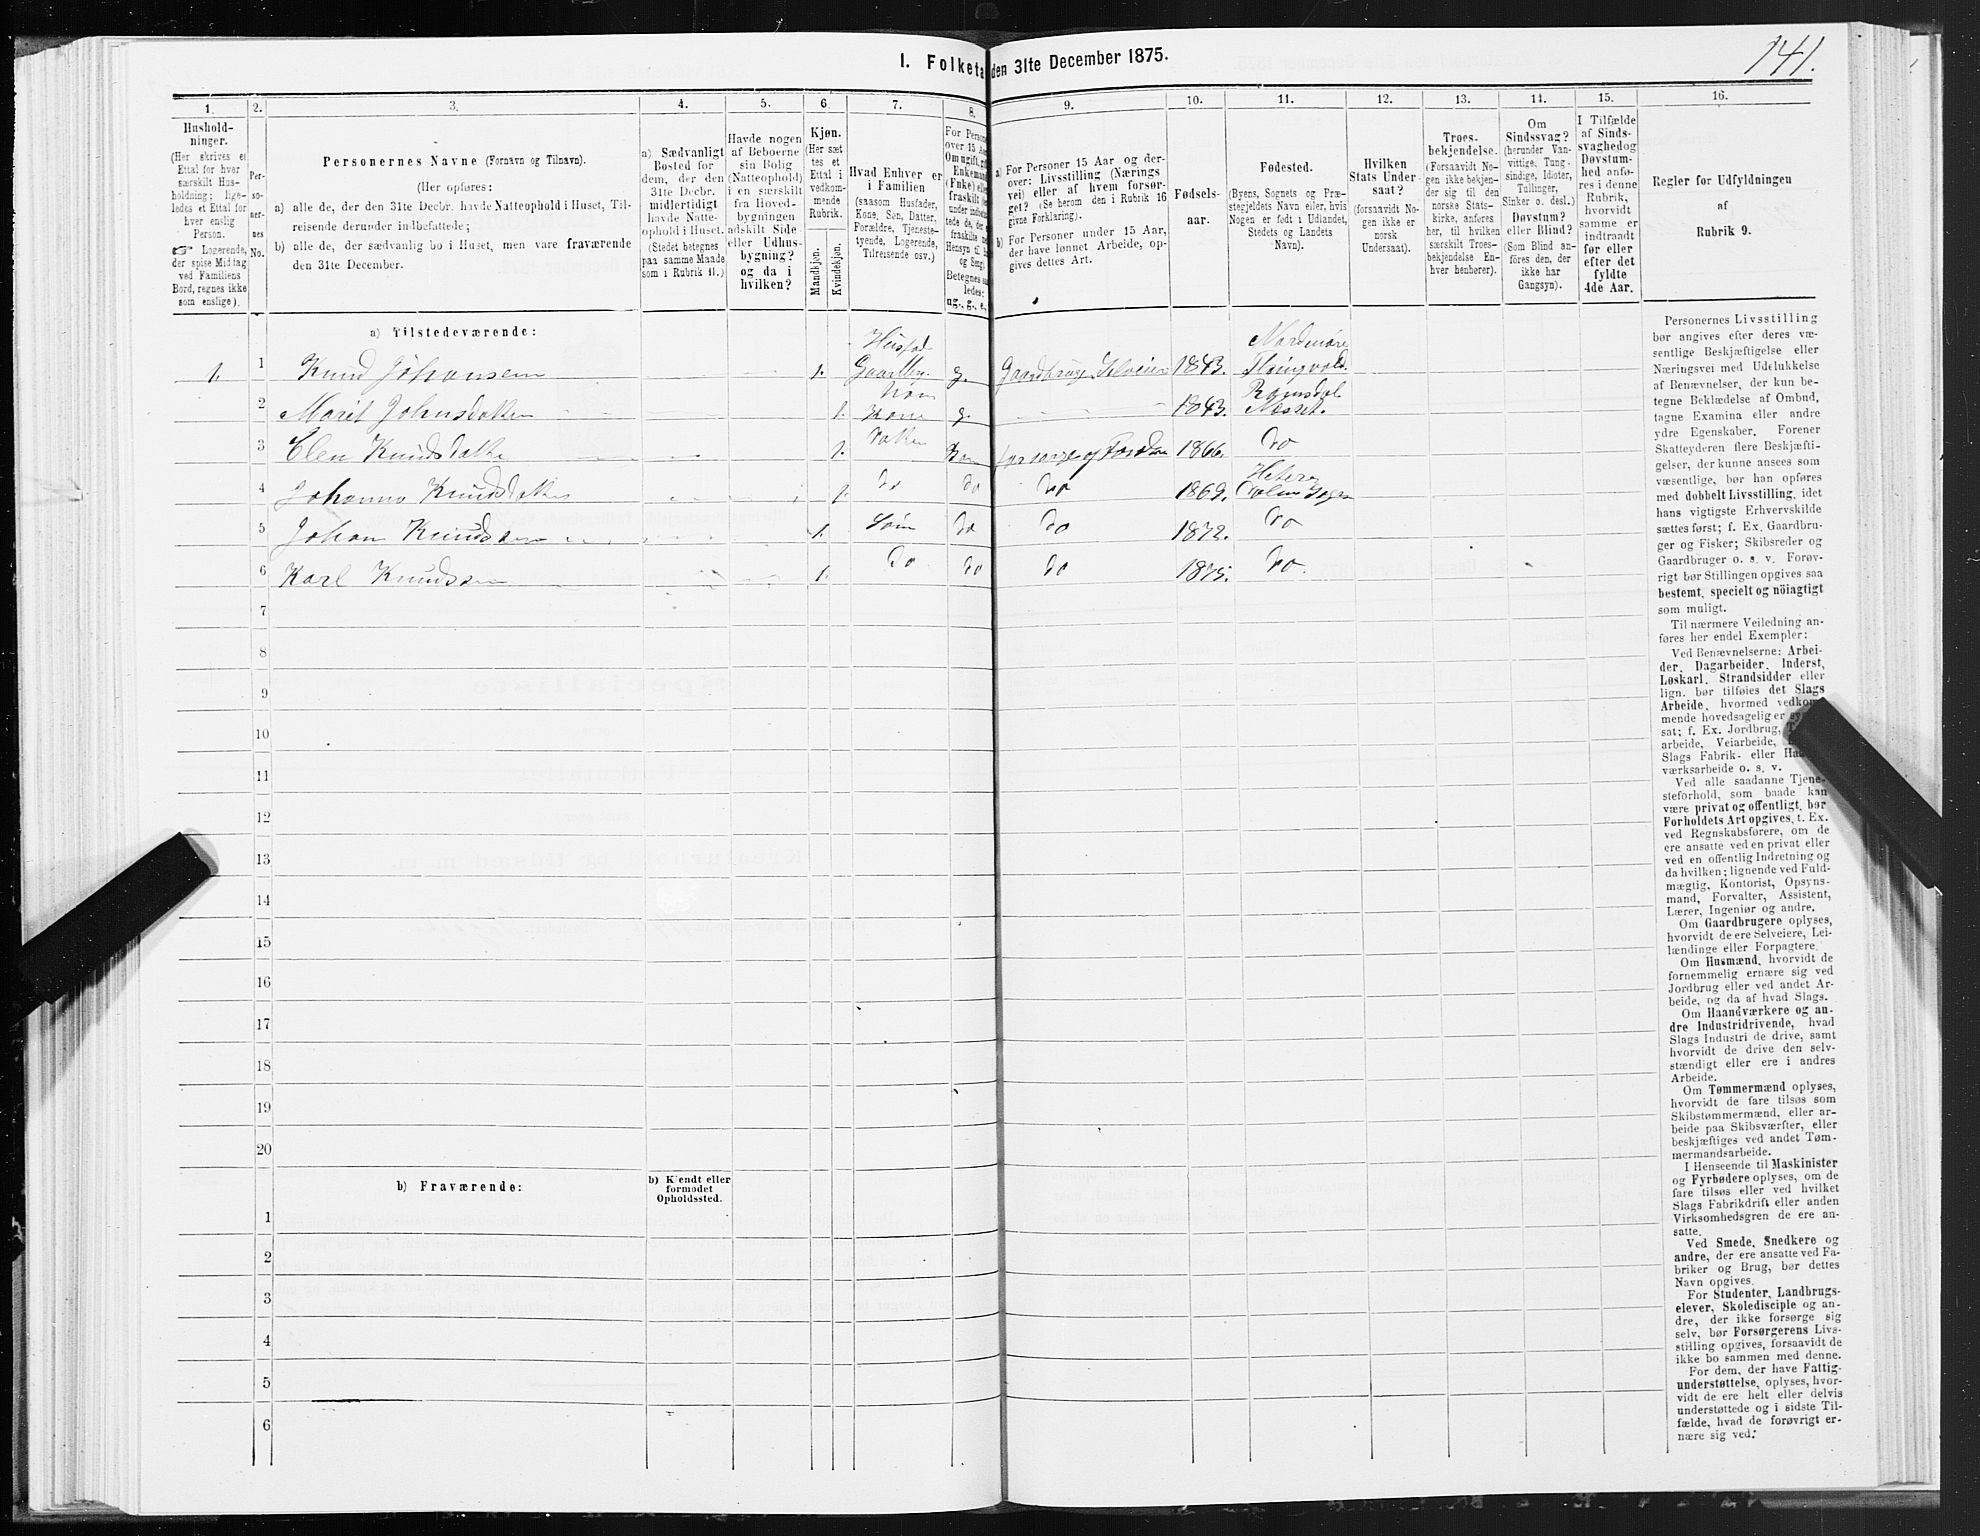 141.
I. Folketa den 31te December 1875.
1. 2. 3. 4. 5. 6 7. 8. 9. 10. 11. 12. 13. 14. 15. 16.
Hushold-
ninger.
(Her skrives et
Ettal for hver
særskilt Hus-
holdning; lige-
ledes et Ettal for
hver enslig
Person.
☞ Logerende,
der spise Middag
ved Familiens
Bord, regnes ikke
som enslige).
Per-
so-
ner-
nes
No.
Personernes Navne (Fornavn og Tilnavn).
(Her opføres:
a) alle de, der den 31te Decbr. havde Natteophold i Huset, Til-
reisende derunder indbefattede;
b) alle de, der sædvanlig bo i Huset, men vare fraværende
den 31te December.
a) Sædvanligt
Bosted for
dem, der den
31te Decbr.
midlertidigt
havde Natte-
ophold i Huset.
(Stedet betegnes
paa samme Maade
som i Rubrik 11.)
Havde nogen
af Beboerne
sin Bolig
(Natteophold)
i en særskilt
fra Hoved-
bygningen
adskilt Side-
eller Udhus-
bygning?
og da i
hvilken?
Kjøn.
(Her sæt-
tes et
Ettal i
vedkom-
mende
Rubrik.
Mandkjøn.
Kvindekjøn.
Hvad Enhver er
i Familien
(saasom Husfader,
Kone, Søn, Datter,
Forældre, Tjeneste-
tyende, Logerende,
Tilreisende osv.)
For Persone
over 15 Aa
Om ugift, gift
Enkemand
(Enke) elle
fraskilt
Betegnes saa
ledes:
ug., g., e.,
a) For Personer 15 Aar og der-
over: Livsstilling (Nærings
vei) eller af hvem forsør-
get? (Se herom den i Rubrik 16
givne Forklaring).
b) For Personer under 15 Aar,
der have lønnet Arbeide, op-
gives dettes Art.
Fødsels-
aar.
Fødested.
(Byens, Sognets og Præ-
stegjeldets Navn eller, hvis
Nogen er født i Udlandet,
Stedets og Landets
Navn).
Hvilken
Stats Under-
saat?
(forsaavidt No-
gen ikke er
norsk
Undersaat).
Troes-
bekjendelse.
(Forsaavidt No-
gen ikke bekjen-
der sig til den
norske Stats-
kirke, anføres
her, til hvilken
særskilt Troes-
bekjendelse En-
hver henhører).
Om
Sindssvag?
(herunder Van-
vittige, Tung-
sindige, Idioter,
Tullinger,
Sinker o. desl.)
Døvstum?
eller Blind?
(Som Blind an-
føres den, der
ikke har
Gangsyn).
I Tilfælde
af Sinds-
svaghed og
Døvstum-
hed anfø-
res i denne
Rubrik,
hvorvidt
samme er
indtraadt
før eller
efter det
fyldte
4de Aar.
Regler for Udfyldningen
af
Rubrik 9.
a) Tilstedeværende:
1. 1 Knud Johansen 1. Husfad Gaardbr. g. Gaardbruger Selveier 1843. Nordmøre Thingvold.
2 Marit Johnsdatter 1. Kone g. 1843. Romsdal Næsset.
3 Elen Knudsdatter 1. Datter 1866. Do
4 Johanna Knudsdatter 1. Do Do Do 1869.
5 Johan Knudsen 1. Søn Do Do 1872. Do
6 Karl Knudsen 1. Do Do Do 1875. Do.
7
8
9
10
11
12
13
14
15
16
17
18
19
20
b) Fraværende:
b) Kjendt eller
formodet
Opholdssted.
1
2
3
4
5
6
Personernes Livsstilling
bør angives efter deres væ-
sentlige Beskjæftigelse eller
Næringsvei med Udelukkelse
af Benævnelser, der kun be-
tegne Beklædelse af Ombud,
tagne Examina eller andre
ydre Egenskaber. Forener
Skatteyderen flere Beskjæfti-
gelser, der kunne ansees som
væsentlige, bør han opføres
med dobbelt Livsstilling, idet
hans vigtigste Erhvervskilde
sættes først; f. Ex. Gaardbru-
ger og Fisker; Skibsreder og
Gaardbruger o. s. v. Forøv-
rigt bør Stillingen opgives saa
bestemt, specielt og nöiagtigt
som muligt.
Til nærmere Veiledning an-
føres her endel Exempler:
Ved Benævnelserne: Arbei-
der, Dagarbeider, Inderst,
Løskarl, Strandsidder eller
lign. bør tilføies det Slags
Arbeide, hvormed vedkom-
mende hovedsagelig er
sat; f. Ex. Jordbrug,
arbeide, Veiarbeide,
Slags Fabrik- eller
værksarbeide o. s. v.
Ved alle saadanne Tjene-
steforhold, som baade kan
være privat og offentligt, bør
Forholdets Art opgives, t. Ex.
ved Regnskabsførere, om de
ere ansatte ved en privat eller
ved en offentlig Indretning og
da hvilken; lignende ved Fuld-
mægtig, Kontorist, Opsyns-
mand, Forvalter, Assistent,
Lærer, Ingeniør og andre.
Om Gaardbrugere oplyses,
hvorvidt de ere Selveiere, Lei-
lændinge eller Forpagtere.
Om Husmænd, hvorvidt de
fornemmelig ernære sig ved
Jordbrug eller ved andet Ar-
beide, og da af hvad Slags.
Om Haandværkere og an-
dre Industridrivende, hvad
Slags Industri de drive, samt
hvorvidt de drive den selv-
stændigt eller ere i andres
Arbeide.
Om Tømmermænd oplyses,
hvorvidt de fare tilsøs som
Skibstømmermænd, eller ar-
beide paa Skibsværfter, eller
beskjæftiges ved andet Tøm-
mermandsarbeide.
I Henseende til Maskinister
og Fyrbødere oplyses, om de
fare tilsøs eller ved hvilket
Slags Fabrikdrift eller anden
Virksomhedsgren de ere an-
satte.
Ved Smede, Snedkere og
andre, der ere ansatte ved Fa-
briker og Brug, bør dettes
Navn opgives.
For Studenter, Landbrugs-
elever, Skoledisciple og an-
dre, der ikke forsørge sig
selv, bør Forsørgerens Livs-
stilling opgives, forsaavidt de
ikke bo sammen med denne.
For dem, der have Fattig-
understøttelse, oplyses, hvor-
vidt de ere helt eller delvis
understøttede og i sidste Til-
fælde, hvad de forøvrigt er-
nære sig ved.